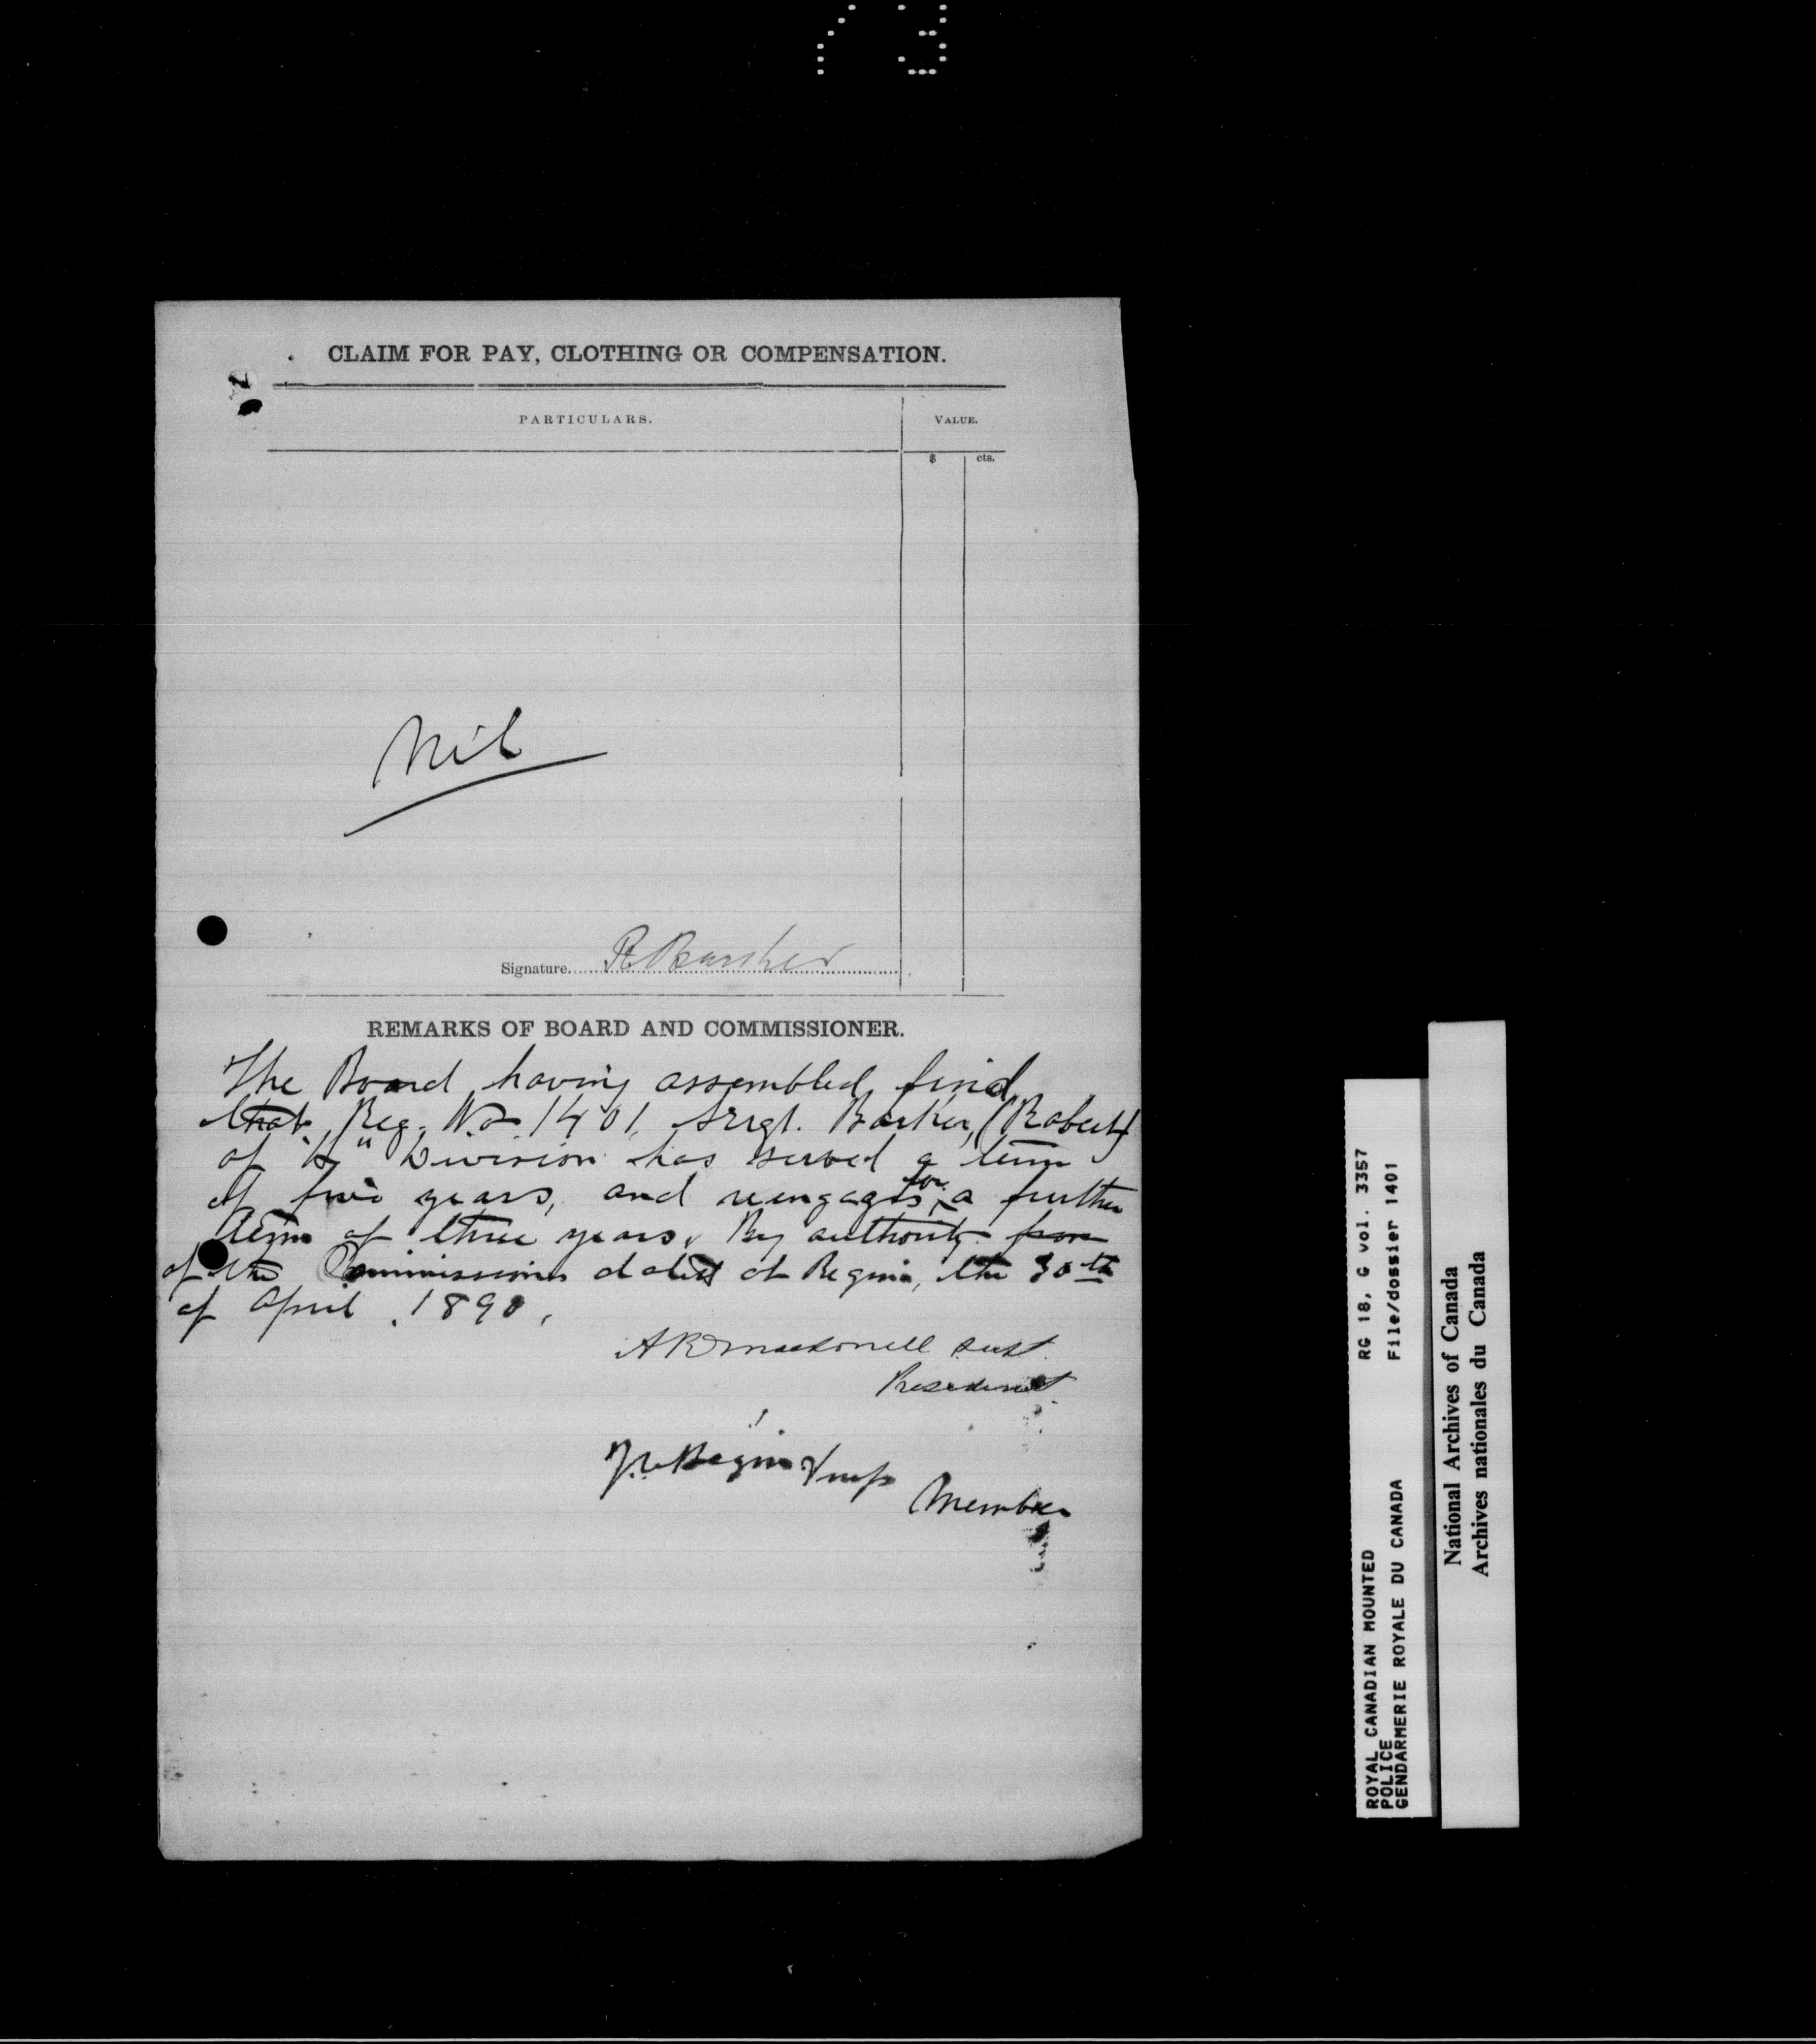 CLAIM FOR PAY, CLOTHING OR COMPENSATION.
PARTICULARS.
VALUE.
$ cts.
Nil
Signature R Barker
REMARKS OF BOARD AND COMMISSIONER.
The Board having assembled find
that Reg. No. 1401, Sergt. Barker, (Robert)
of Division has served a term
of five years, and reengages for a further
term of three years. By authority from
of the Commissioner dated at Regina, the 30th
of April 1890,
A R Macdonell Supt
President
Begin Insp
Member
ROYAL CANADIAN MOUNTED RG 18, G vol. 3357
POLICE File/dossier 1401
GENDARMERIE ROYALE DU CANADA
National Archives of Canada
Archives nationales du Canada